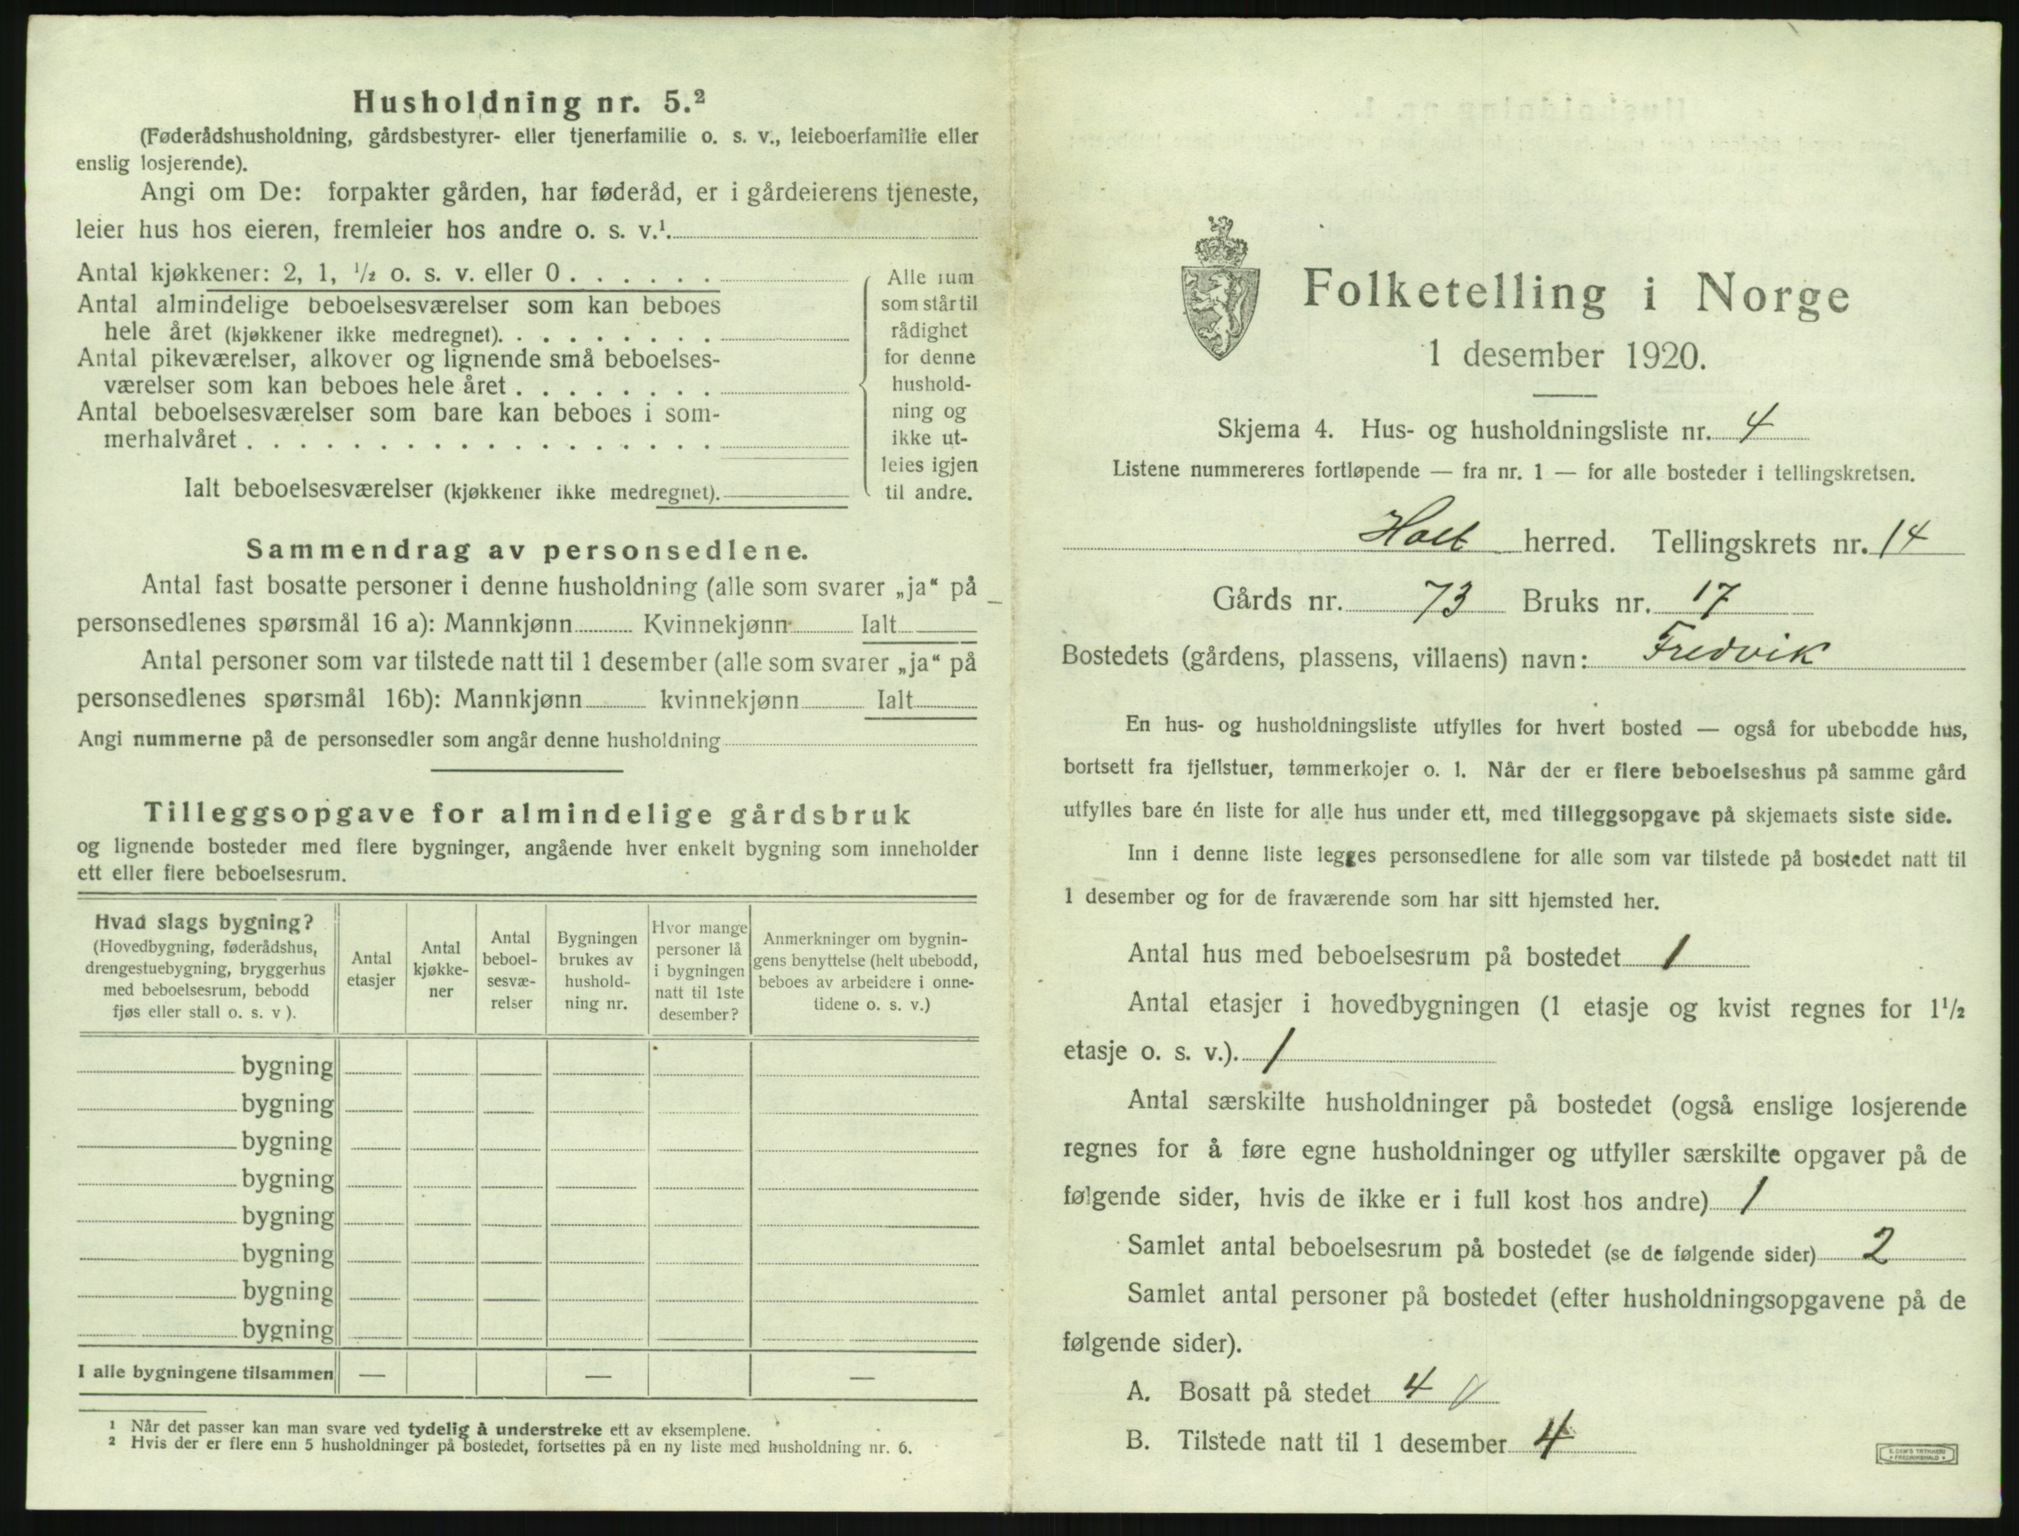 Husholdning nr. 5.²
(Føderådshusholdning, gårdsbestyrer- eller tjenerfamilie o. s. v., leieboerfamilie eller
enslig losjerende).
Angi om De: forpakter gården, har føderåd, er i gårdeierens tjeneste,
leier hus hos eieren, fremleier hos andre o. s. v.¹.
Antal kjøkkener: 2, 1, ½ o. s. v. eller 0 . . . . . .
Antal almindelige beboelsesværelser som kan beboes
hele året (kjøkkener ikke medregnet). . . . . . . . .
Antal pikeværelser, alkover og lignende små beboelses-
værelser som kan beboes hele året . . . . . . . .
Antal beboelsesværelser som bare kan beboes i som-
merhalvåret . . . . . . . . . . . . . . . . . .
Ialt beboelsesværelser (kjøkkener ikke medregnet).
Alle rum
som står til
rådighet
for denne
hushold-
ning og
ikke ut-
leies igjen
til andre.
Sammendrag av personsedlene.
Antal fast bosatte personer i denne husholdning (alle som svarer „ja“ på
personsedlenes spørsmål 16 a): Mannkjønn Kvinnekjønn Ialt
Antal personer som var tilstede natt til 1 desember (alle som svarer „ja“ på
personsedlenes spørsmål 16b): Mannkjønn kvinnekjønn Ialt
Angi nummerne på de personsedler som angår denne husholdning
Tilleggsopgave for almindelige gårdsbruk
og lignende bosteder med flere bygninger, angående hver enkelt bygning som inneholder
ett eller flere beboelsesrum.
Hvad slags bygning?
(Hovedbygning, føderådshus,
drengestuebygning, bryggerhus
med beboelsesrum, bebodd
fjøs eller stall o. s. v ).
Antal
etasjer
Antal
kjøkke-
ner
Antal
beboel-
sesvæ-
relser
Bygningen
brukes av
hushold-
ning nr.
Hvor mange
personer lå
i bygningen
natt til 1ste
desember?
Anmerkninger om bygnin-
gens benyttelse (helt ubebodd,
beboes av arbeidere i onne-
tidene o. s. v.)
bygning
bygning
bygning
bygning
bygning
bygning
bygning
bygning
I alle bygningene tilsammen — — —
¹ Når det passer kan man svare ved tydelig å understreke ett av eksemplene.
² Hvis der er flere enn 5 husholdninger på bostedet, fortsettes på en ny liste med husholdning nr. 6.
Folketelling i Norge
1 desember 1920.
Skjema 4. Hus- og husholdningsliste nr. 4
Listene nummereres fortløpende — fra nr. 1 — for alle bosteder i tellingskretsen.
Holt herred. Tellingskrets nr. 14
Gårds nr. 73 Bruks nr. 17
Bostedets (gårdens, plassens, villaens) navn: Fredvik
En hus- og husholdningsliste utfylles for hvert bosted — også for ubebodde hus,
bortsett fra fjellstuer, tømmerkojer o. l. Når der er flere beboelseshus på samme gård
utfylles bare én liste for alle hus under ett, med tilleggsopgave på skjemaets siste side.
Inn i denne liste legges personsedlene for alle som var tilstede på bostedet natt til
1 desember og for de fraværende som har sitt hjemsted her.
Antal hus med beboelsesrum på bostedet 1
Antal etasjer i hovedbygningen (1 etasje og kvist regnes for 1½
etasje o. s. v.). 1
Antal særskilte husholdninger på bostedet (også enslige losjerende
regnes for å føre egne husholdninger og utfyller særskilte opgaver på de
følgende sider, hvis de ikke er i full kost hos andre) 1
Samlet antal beboelsesrum på bostedet (se de følgende sider) 2
Samlet antal personer på bostedet (efter husholdningsopgavene på de
følgende sider).
A. Bosatt på stedet 4
B. Tilstede natt til 1 desember 4